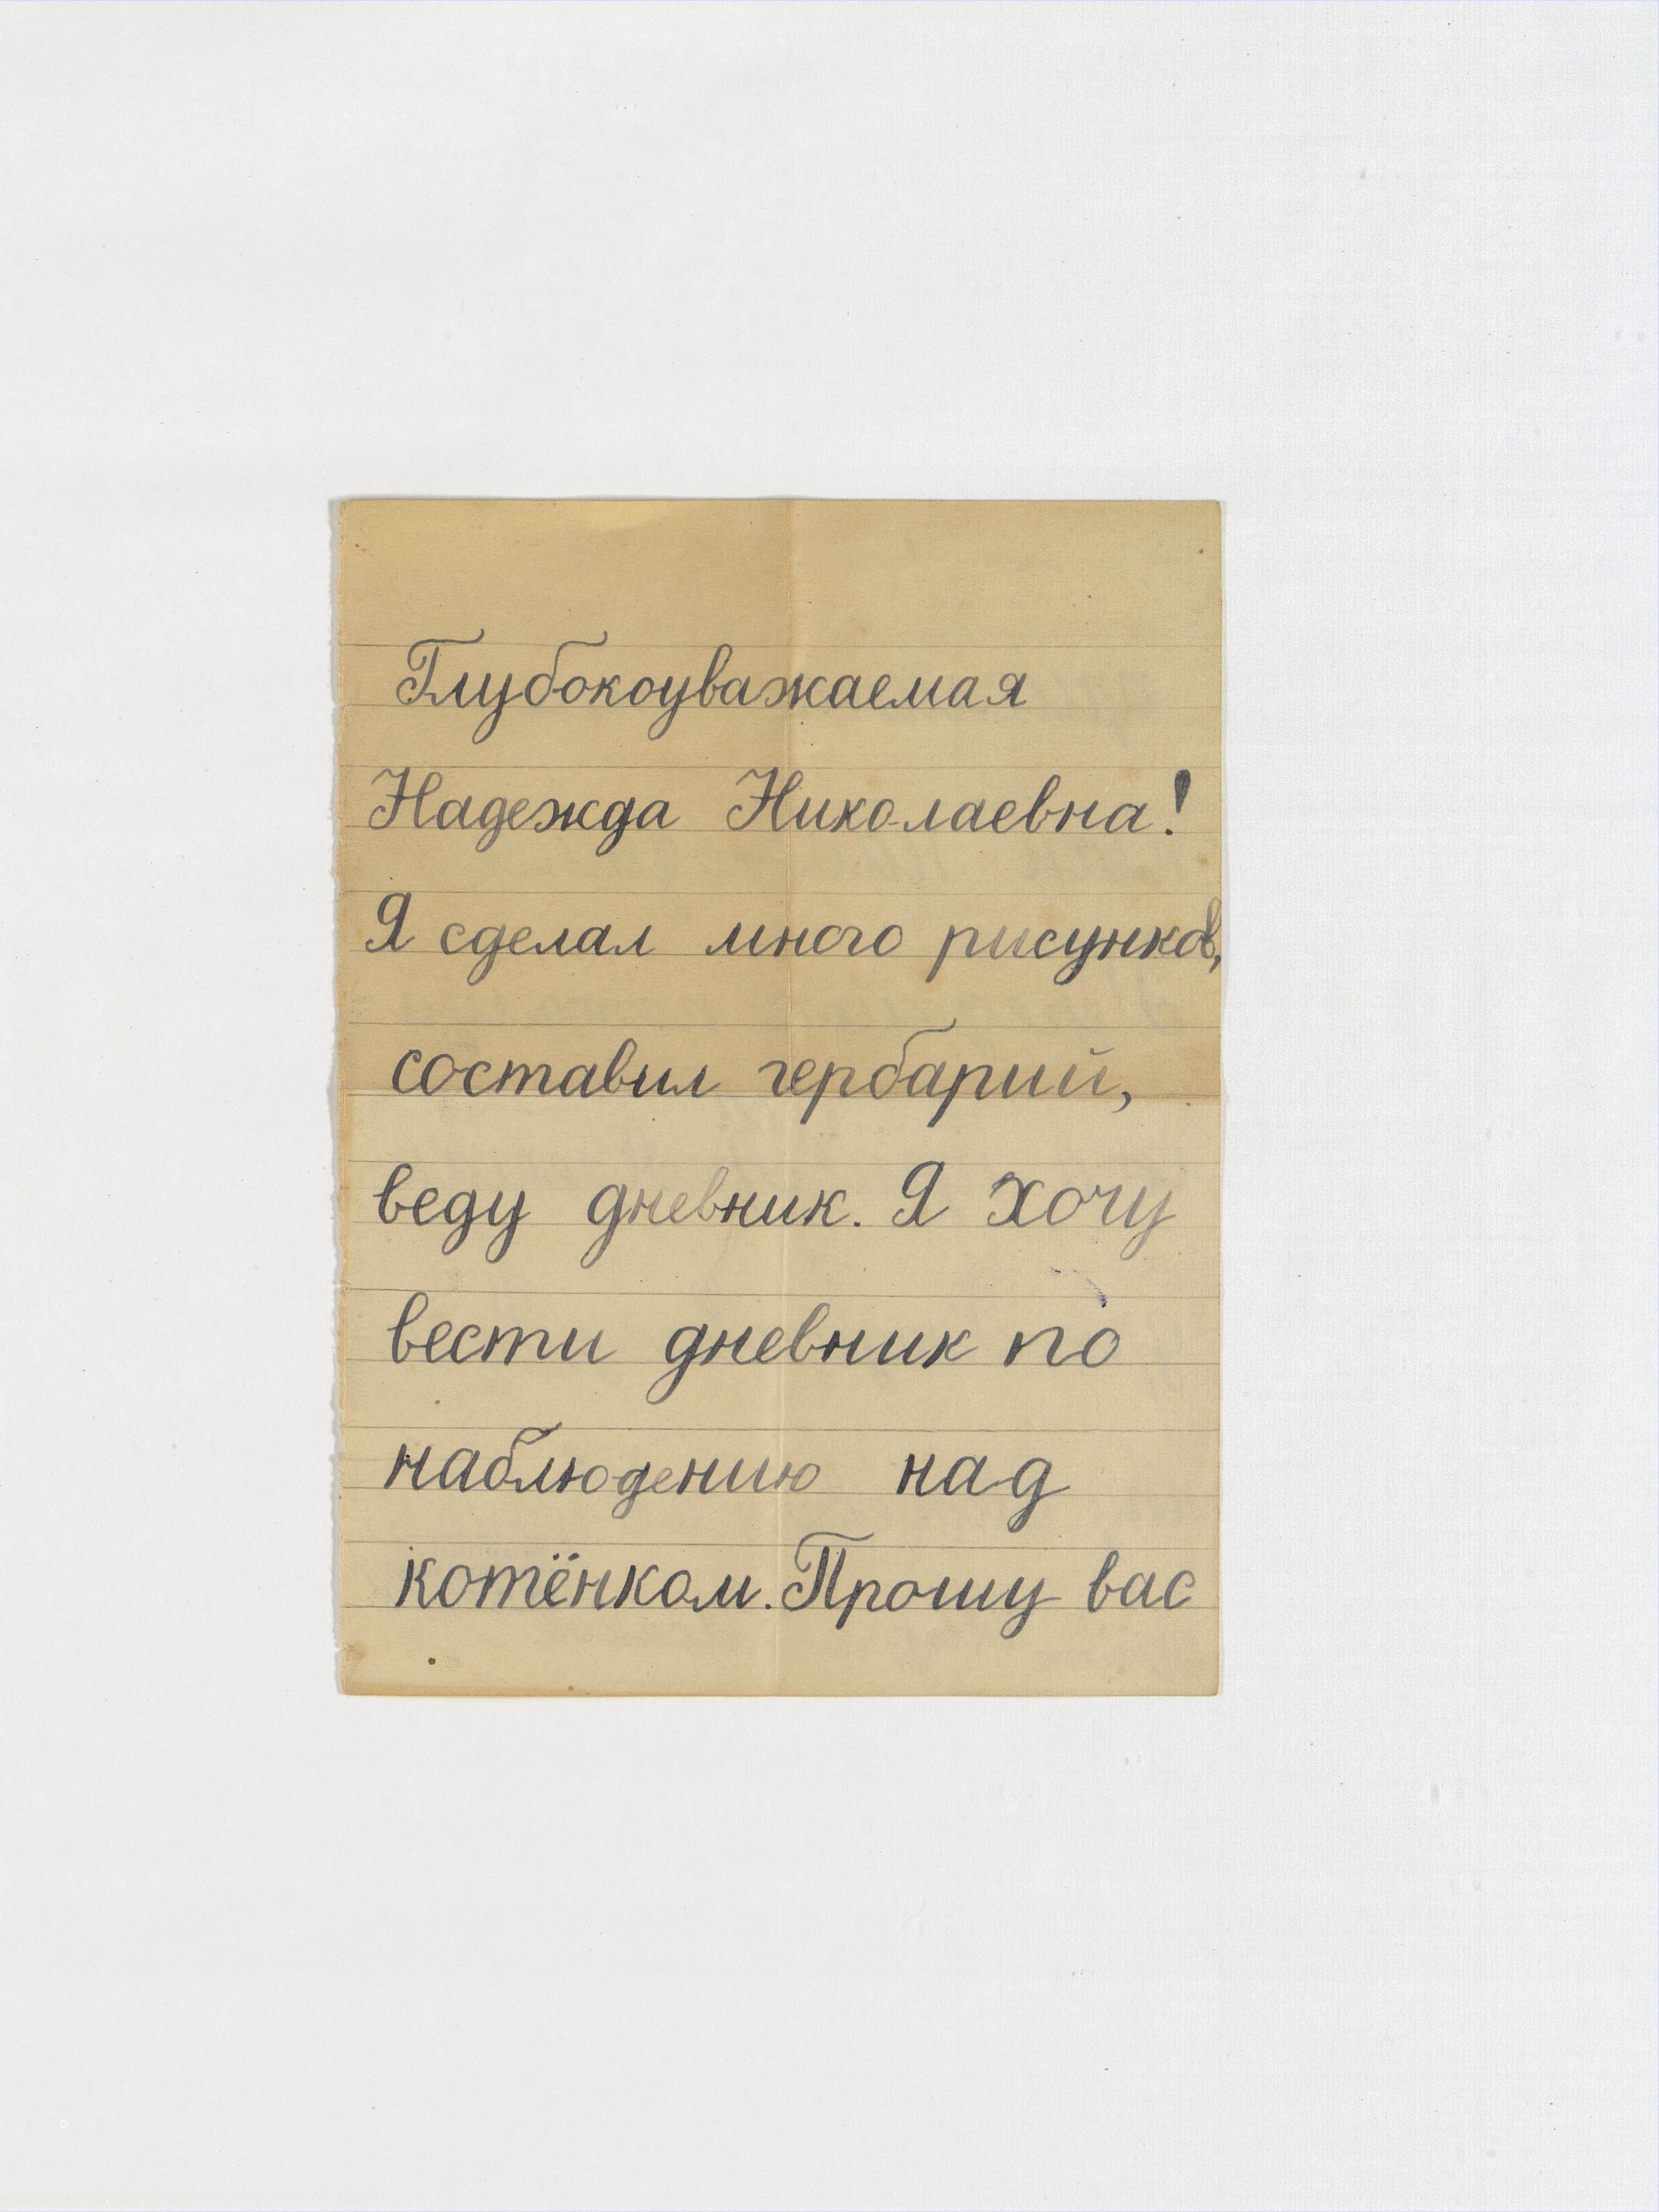 Глубокоуважаемая
Надежда Николаевна!
Я сделал много рисунков,
составил гербарий,
веду дневник. Я хочу
вести дневник по
наблюдению над
котёнком. Прошу вас